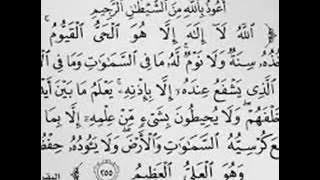 أَعُوذُ بِاللَّهِ مِنَ الشَّيْطَانِ الرَّجِيمِ
اللَّهُ لَآ إِلَٰهَ إِلَّا هُوَ الْحَيُّ الْقَيُّومُ ۚ
خُذُهُۥ سِنَةٌ وَلَا نَوْمٌ ۚ لَّهُۥ مَا فِي السَّمَٰوَٰتِ وَمَا فِي
الَّذِي يَشْفَعُ عِندَهُۥٓ إِلَّا بِإِذْنِهِۦ ۚ يَعْلَمُ مَا بَيْنَ أَيْد
خَلْفَهُمْ ۖ وَلَا يُحِيطُونَ بِشَيْءٍ مِّنْ عِلْمِهِۦٓ إِلَّا بِمَا
عَ كُرْسِيُّهُ السَّمَٰوَٰتِ وَالْأَرْضَ ۖ وَلَا يَـُٔودُهُۥ حِفْظُ
وَهُوَ الْعَلِيُّ الْعَظِيمُ ٢٥٥ البقر